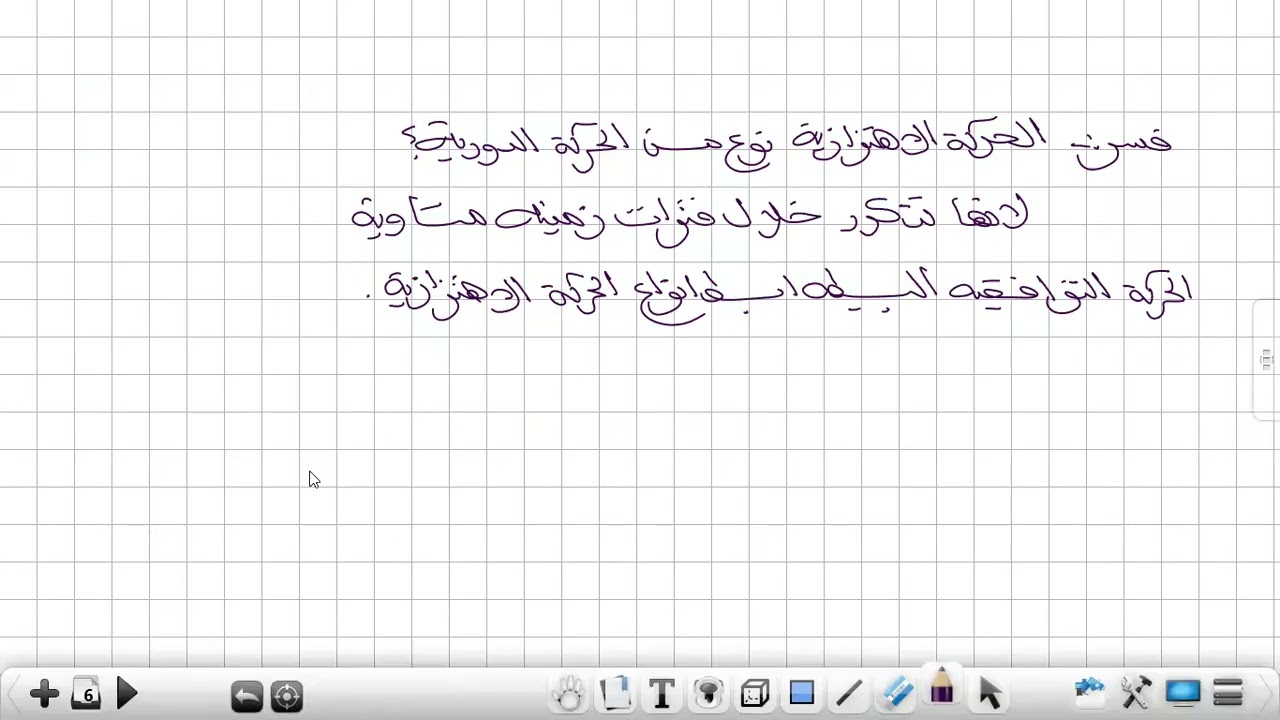 فسرت الحركة الاهتزازية نوع من الحركة الدورية؟
لانها تتكرر خلال فترات زمنيه متساوية
الحركة التوافقيه البسيطه ابسط انواع الحركة الاهتزازية .
6